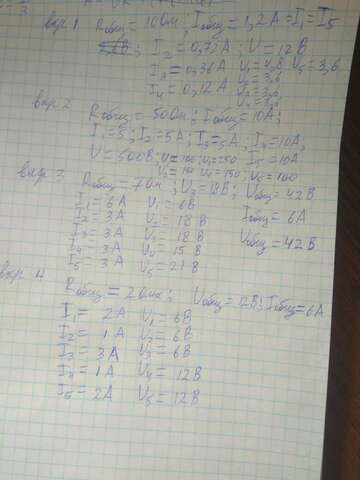 вар 1 Rобщ = 10 Ом; Iобщ = 1,2 А = I1 = I5
I2 = 0,72 А; U = 12 В
I3 = 0,36 А U1 = 4,8 U5 = 3,6
I4 = 0,12 А U2 = 3,6
U3 = 3,6
U4 = 3,6
вар 2 Rобщ = 50 Ом; Iобщ = 10 А;
I1 = 5; I2 = 5 А; I3 = 5 А, I4 = 10 А,
U = 500 В; U1 = 100; U2 = 250 I5 = 10 А
U3 = 150 U4 = 150; U5 = 100
вар 3 Rобщ = 7 Ом; U2 = 18 В; Uобщ = 42 В
I1 = 6 А U1 = 6 В Iобщ = 6 А
I2 = 3 А U2 = 18 В
I3 = 3 А U3 = 18 В Uобщ = 42 В
I4 = 3 А U4 = 15 В
I5 = 3 А U5 = 21 В
вар 4 Rобщ = 2 Ома; Uобщ = 12 В; Iобщ = 6 А
I1 = 2 А U1 = 6 В
I2 = 1 А U2 = 6 В
I3 = 3 А U3 = 6 В
I4 = 1 А U4 = 12 В
I5 = 2 А U5 = 12 В